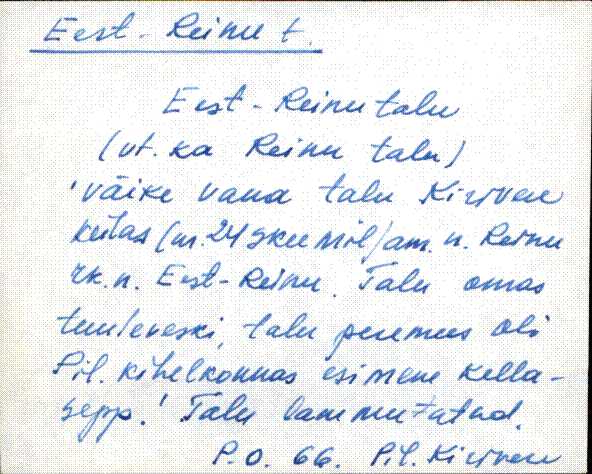 Eest-Reinu t.
Eest-Reinu talu
(vt. ka Reinu talu)
'väike vana talu Kirivere
külas (nr. 24 skeemil) am. n. Reinu
rk. n. Eest-Reinu. Talu omas
tuuleveski, talu peremees oli
Pil. kihelkonnas esimene kella-
sepp.' Talu lammutatud.
P.O. 66. Pil. Kirivere